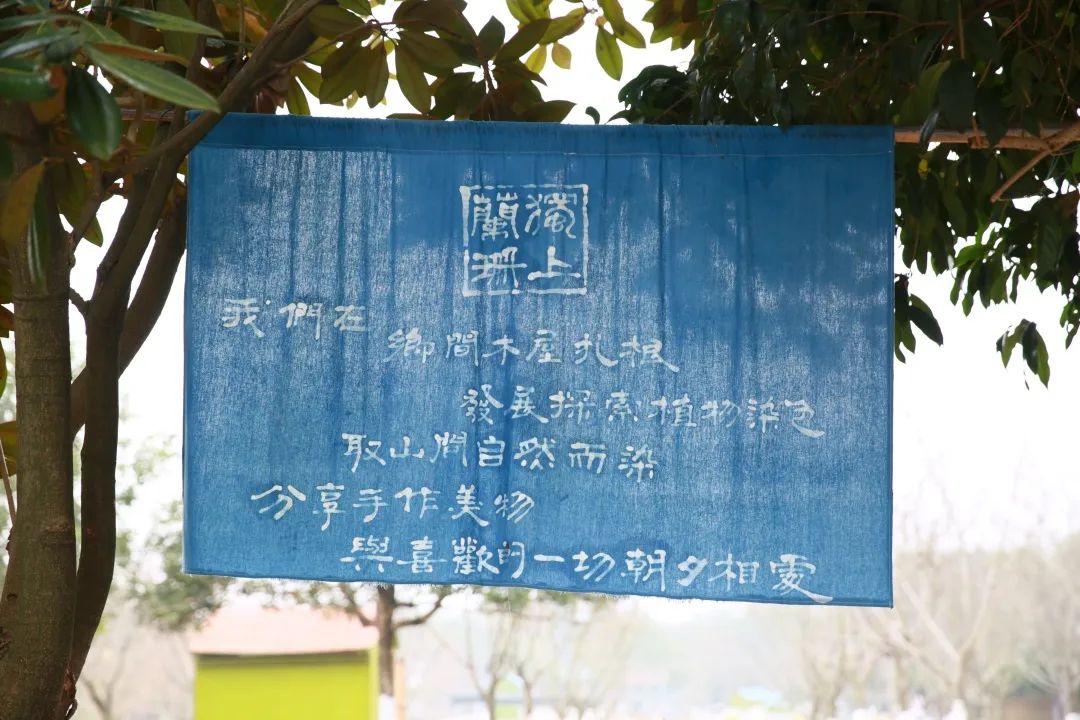 獨上
蘭
我們在
鄉間木屋扎根
發展探索植物染色
取山間自然而染
分享手作美物
與喜歡的一切朝夕相處